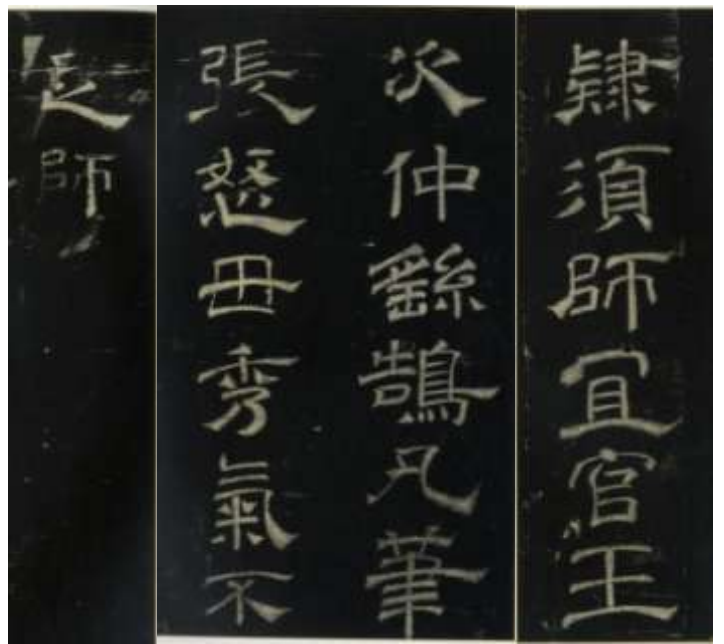 隸須師宜官王
次仲繇鵠凡筆
張怒毋秀氣不
足師